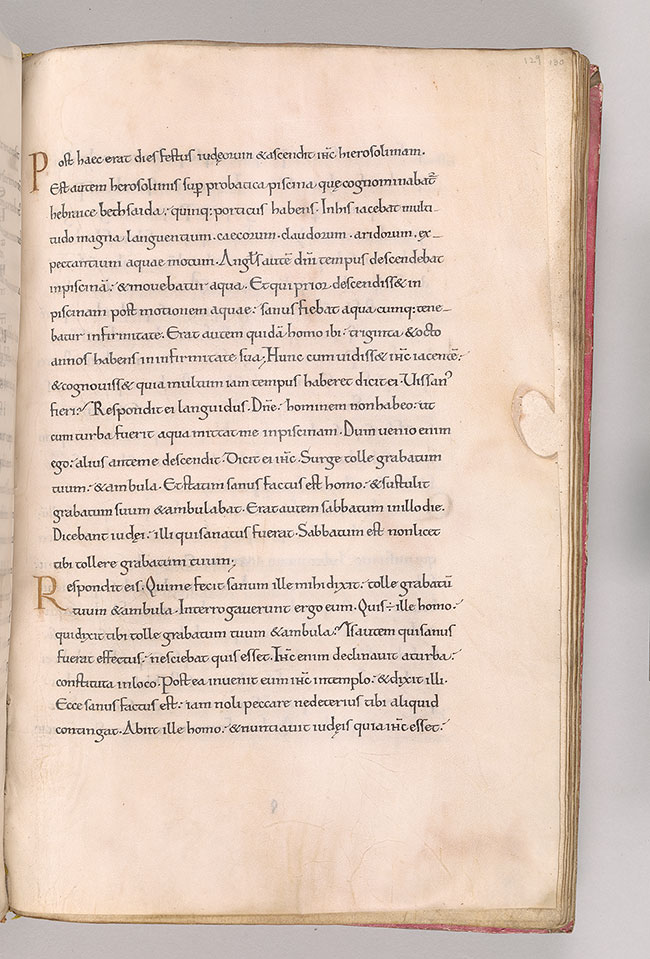 129 130
Post haec erat dies festus iudęorum &ascendit ihc hierosolimam.
Est autem herosolimis sup probatica piscina quę cognominabat̄
hebraice bethsaida; quinq; porticus habens. Inhis iacebat multi-
tudo magna languentium. caecorum. claudorum. aridorum. ex-
pectantium aquae motum. Angl̄s autē dn̄i tempus descendebat
inpiscinā; & movebatur aqua. Et qui prior descendiss& in
piscinam post motionem aquae; sanus fiebat a quacumq; tene-
batur infirmitate. Erat autem quidā homo ibi; triginta &octo
annos habens in infirmitate sua; Hunc cum uidiss& ihc iacentē;
&cognouiss& quia multum iam tempus haberet dicit ei. Uis san'
fieri? Respondit ei languidus. Dn̄e; hominem non habeo; ut
cum turba fuerit aqua mittat me inpiscinam. Dum uenio enim
ego; alius ante me descendit. Dicit ei ihc. Surge tolle grabatum
tuum; &ambula. Et statim sanus factus est homo; &sustulit
grabatum suum &ambulabat. Erat autem sabbatum inillo die.
Dicebant iudęi; illi qui sanatus fuerat. Sabbatum est non licet
tibi tollere grabatum tuum;
Respondit eis. Qui me fecit sanum ille mihi dixit; tolle grabatū
tuum &ambula. Interrogaverunt ergo eum. Quis ÷ ille homo;
qui dixit tibi tolle grabatum tuum &ambula? Is autem qui sanus
fuerat effectus; nesciebat quis esset. Ihc enim declinauit a turba;
constituta in loco. Post ea inuenit eum ihc in templo; &dixit illi.
Ecce sanus factus est; iam noli peccare ne deterius tibi aliquid
contingat. Abiit ille homo; &nuntiauit iudęis quia ihc esset;